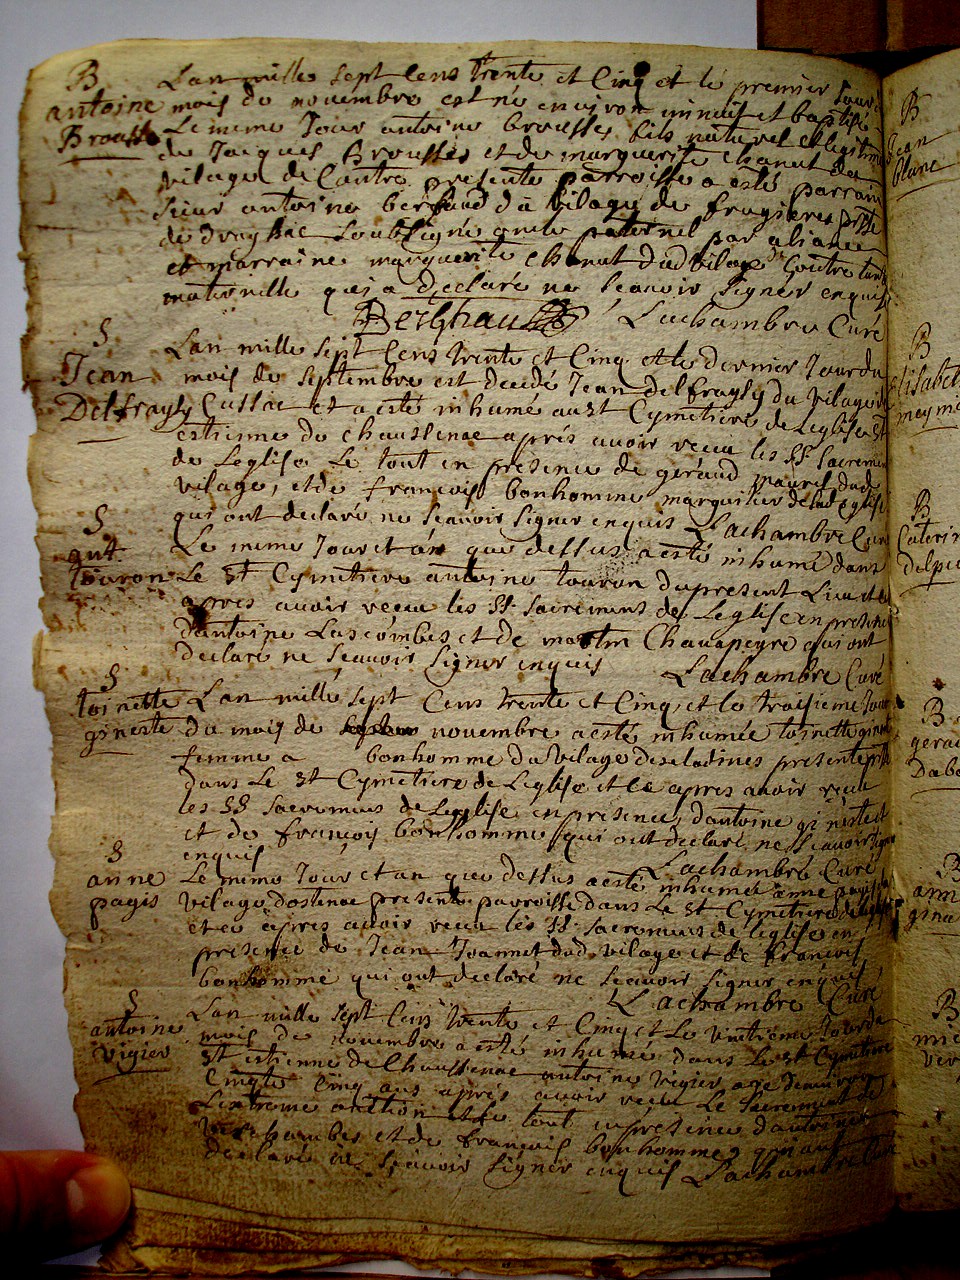 B
antoine
Brousse
Lan mille sept Cens trente et Cinq et le premier Jour
mois de novembre est né environ minuit et baptisé
Le meme Jour antoine brousses fils naturel et legitime
de Jacques Brousses et de marguerite Chanut du
vilage de Contre presente parroisse a esté parrain
sieur antoine bertaud du vilage de frugieres
de draghac soubsigné oncle paternel par aliance
et marraine marguerite Chanut dud vilage de Contre tante
maternelle qui a declaré ne scavoir signer enquis
Lachambre Curé
§
Jean
Delfraysy
Lan mille sept Cens trente et Cinq et le dernier Jour du
mois de septembre est decedé Jean delfraysy du vilage de
Cussac et a esté inhumé au st Cymetiere de Leglise st
estienne de chaussenac aprés avoir receu les SS. sacremens
de Leglise Le tout en presence de géraud mauret dud
vilage, et de francois bonhomme marguilier de lad eglise
qui ont declaré ne scavoir signer enquis Lachambre Curé
§
ant.
touron
Le meme Jour et án que dessus a esté inhumé dans
Le st Cymetiere antoine touron du present Lieu et ce
apres avoir receu les SS. sacremens de Leglise en presence
dantoine Lascombes et de martin Chauapeyre qui ont
declaré ne scavoir signer enquis Lachambre Curé
§
toinette
gineste
Lan mille sept Cens trente et Cinq, et le troisieme Jour
du mois de novembre a esté inhumée toinette gineste
femme a bonhomme du vilage descladines presente prsse
dans Le st Cymetiere de Leglise et ce apres avoir receu
les SS sacremens de Leglise en presence, dantoine gineste
et de francois bonhomme qui ont declaré ne scavoir signer
enquis Lachambre Curé
§
anne
pagis
Le meme Jour et an que dessus a esté inhumée anne pagis du
vilage dostenac presente parroisse dans Le st Cymetiere de leglise
et ce apres avoir receu les SS. sacremens de leglise en
presence de Jean Joannet dud. vilage et de francois
bonhomme qui ont declaré ne scavoir signer enquis
Lachambre Curé
§
antoine
vigier
Lan mille sept Cens trente et Cinq et Le vintieme Jour du
mois de novembre a esté inhumé dans Le st Cymetiere
st estienne de Chaussenac antoine vigier agé denviron
Cinqte Cinq ans aprés avoir receu Le sacrement de
Lextreme onction et le tout en presence dantoine
et de francois bonhomme qui ont
declaré ne scavoir signer enquis Lachambre Curé
B
Jean
blanc
B
B
B
B
B